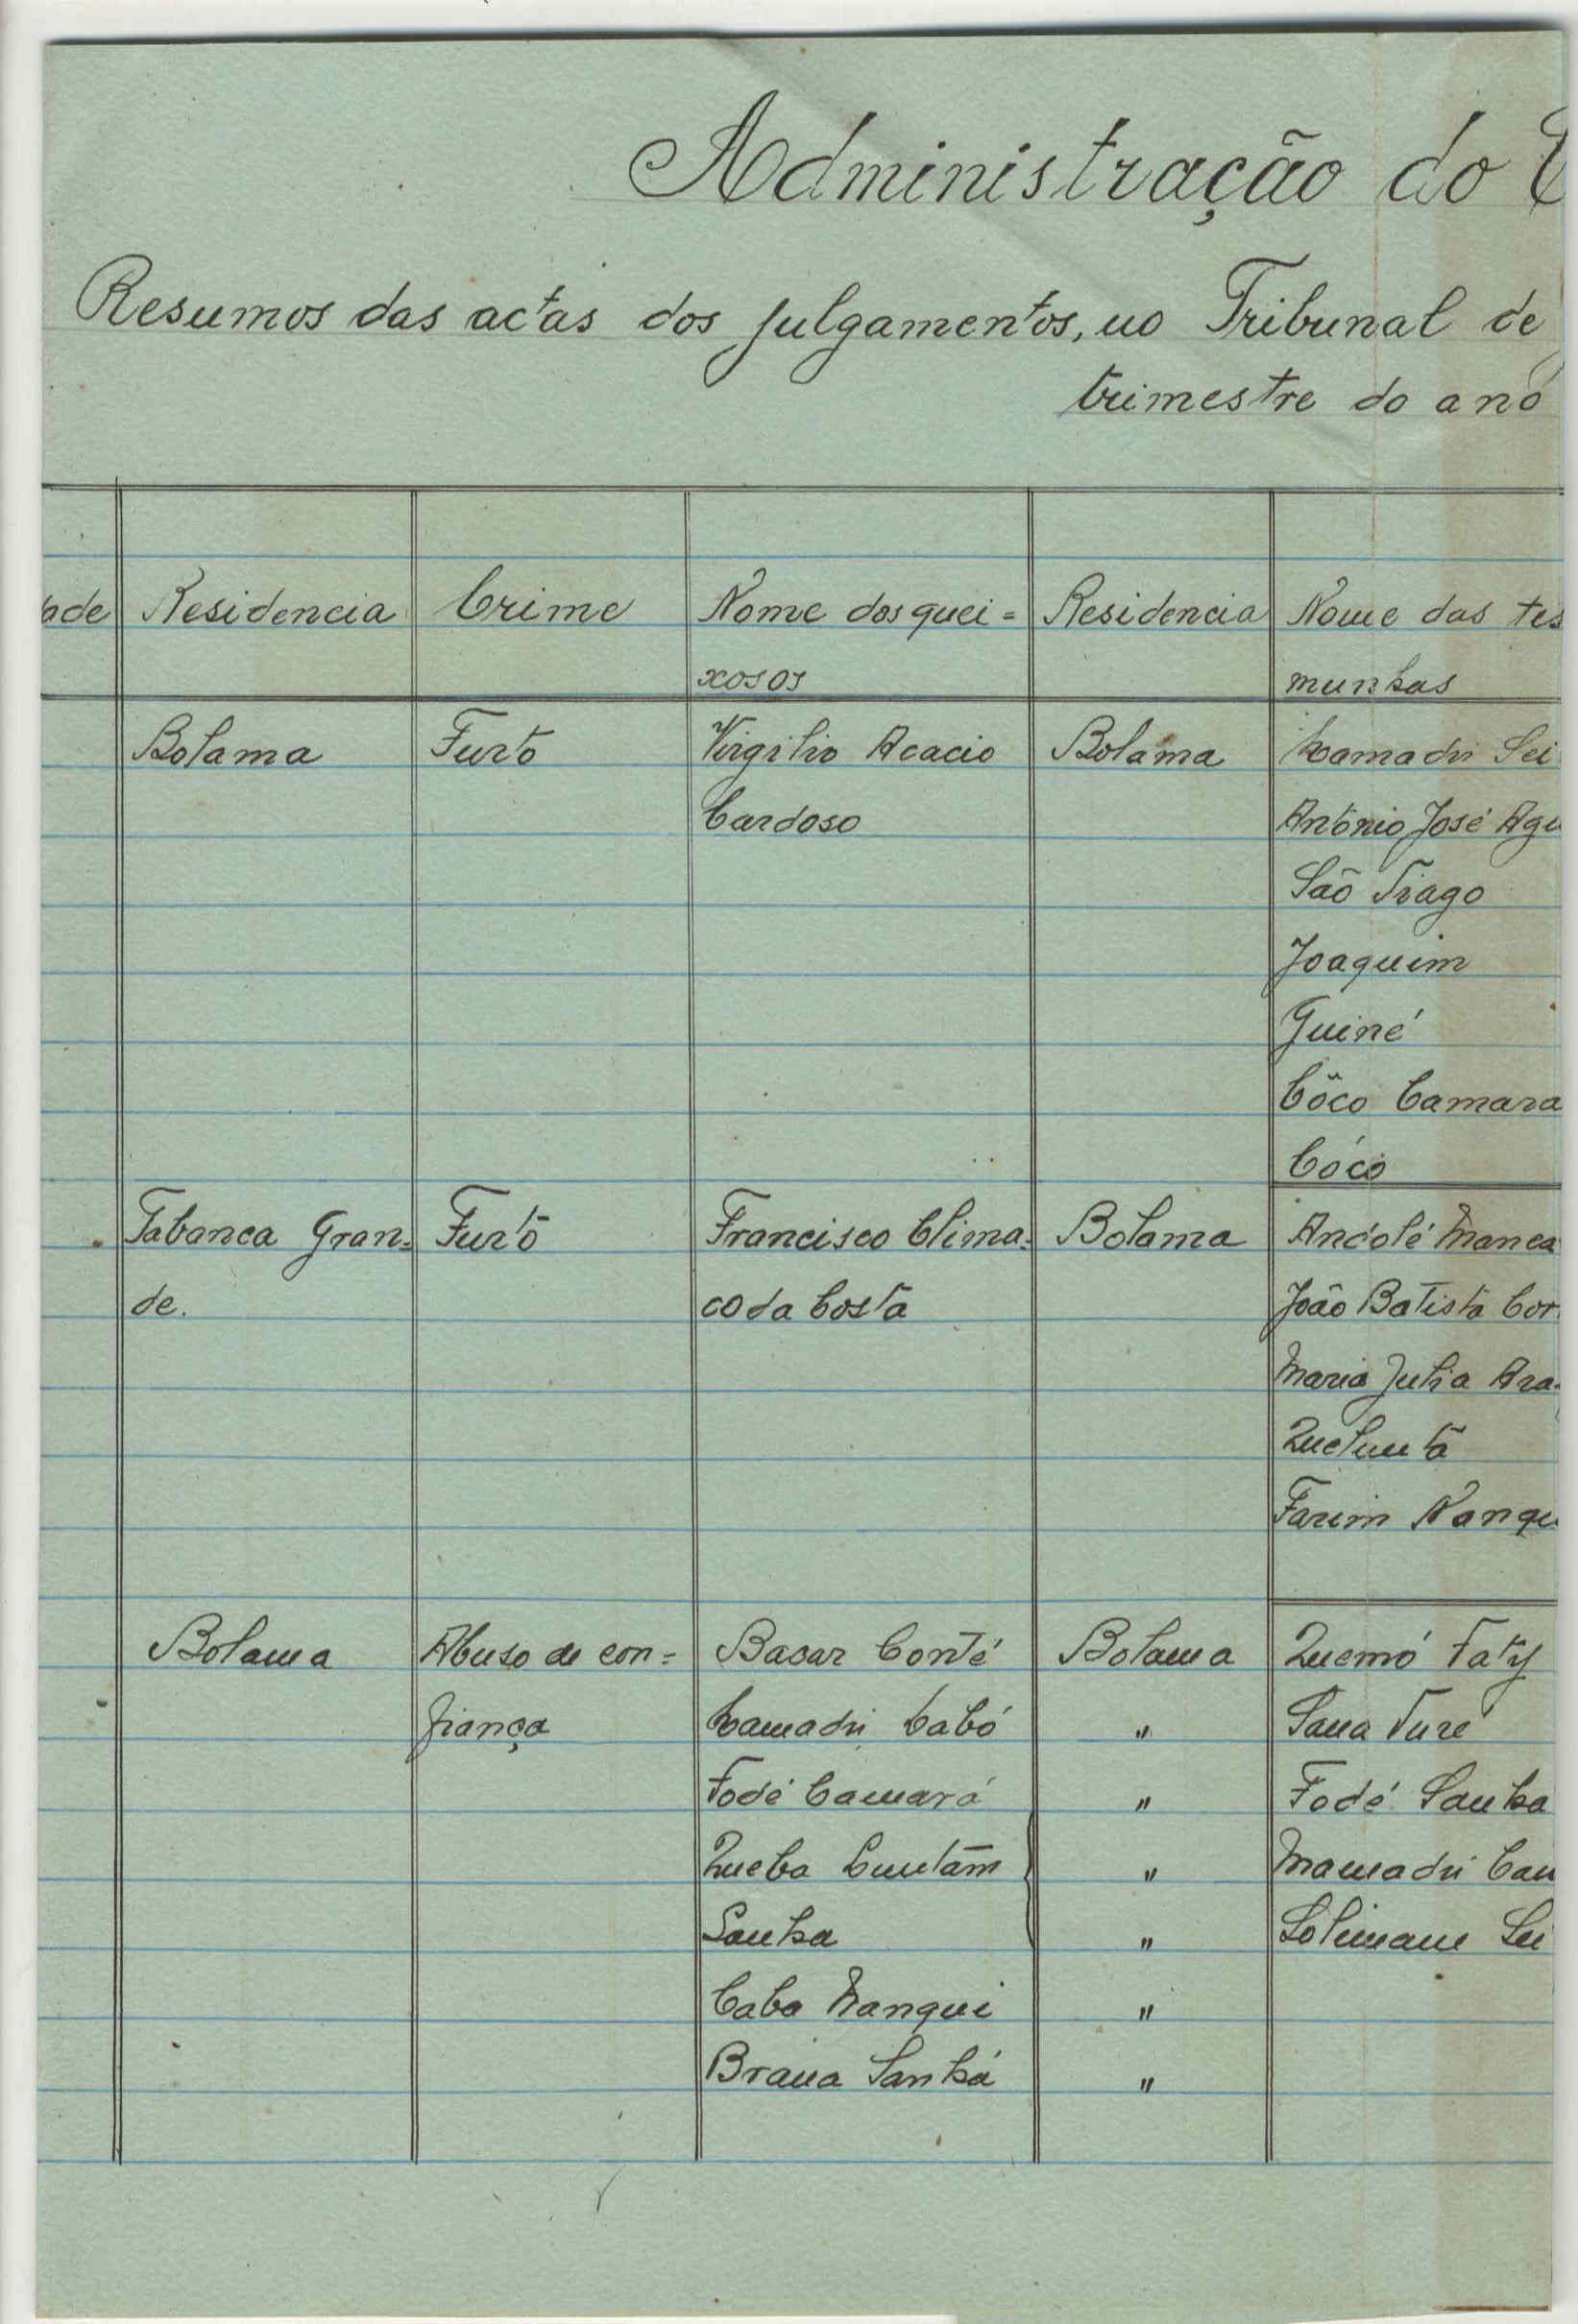 Administração do C
Resumos das actas dos julgamentos, no Tribunal de
trimestre do ano
ade Residencia Crime Nome dos quei= Residencia Nome das tes
xosos munhas
Bolama Furto Virgilio Acacio Bolama Mamadú Sei
Cardoso António José Agu
São Tiago
Joaquim
Guiné
Côco Camara
Cóco
Tabanca Gran= Furto Francisco Clima= Bolama Ancolé Manca
de. co da Costa João Batista Cor
Maria Julia Ara
Quelunta
Farim Nanqu
Bolama Abuso de con= Bacar Conté Bolama Quemó Faty
fiança Mamadú Cabó " Sana Ture
Fodé Camará " Fodé Sanha
Queba Cuntam " Mamadú Can
Sanha " Solimane Sei
Cabo Nanqui "
Brana Sanhá "